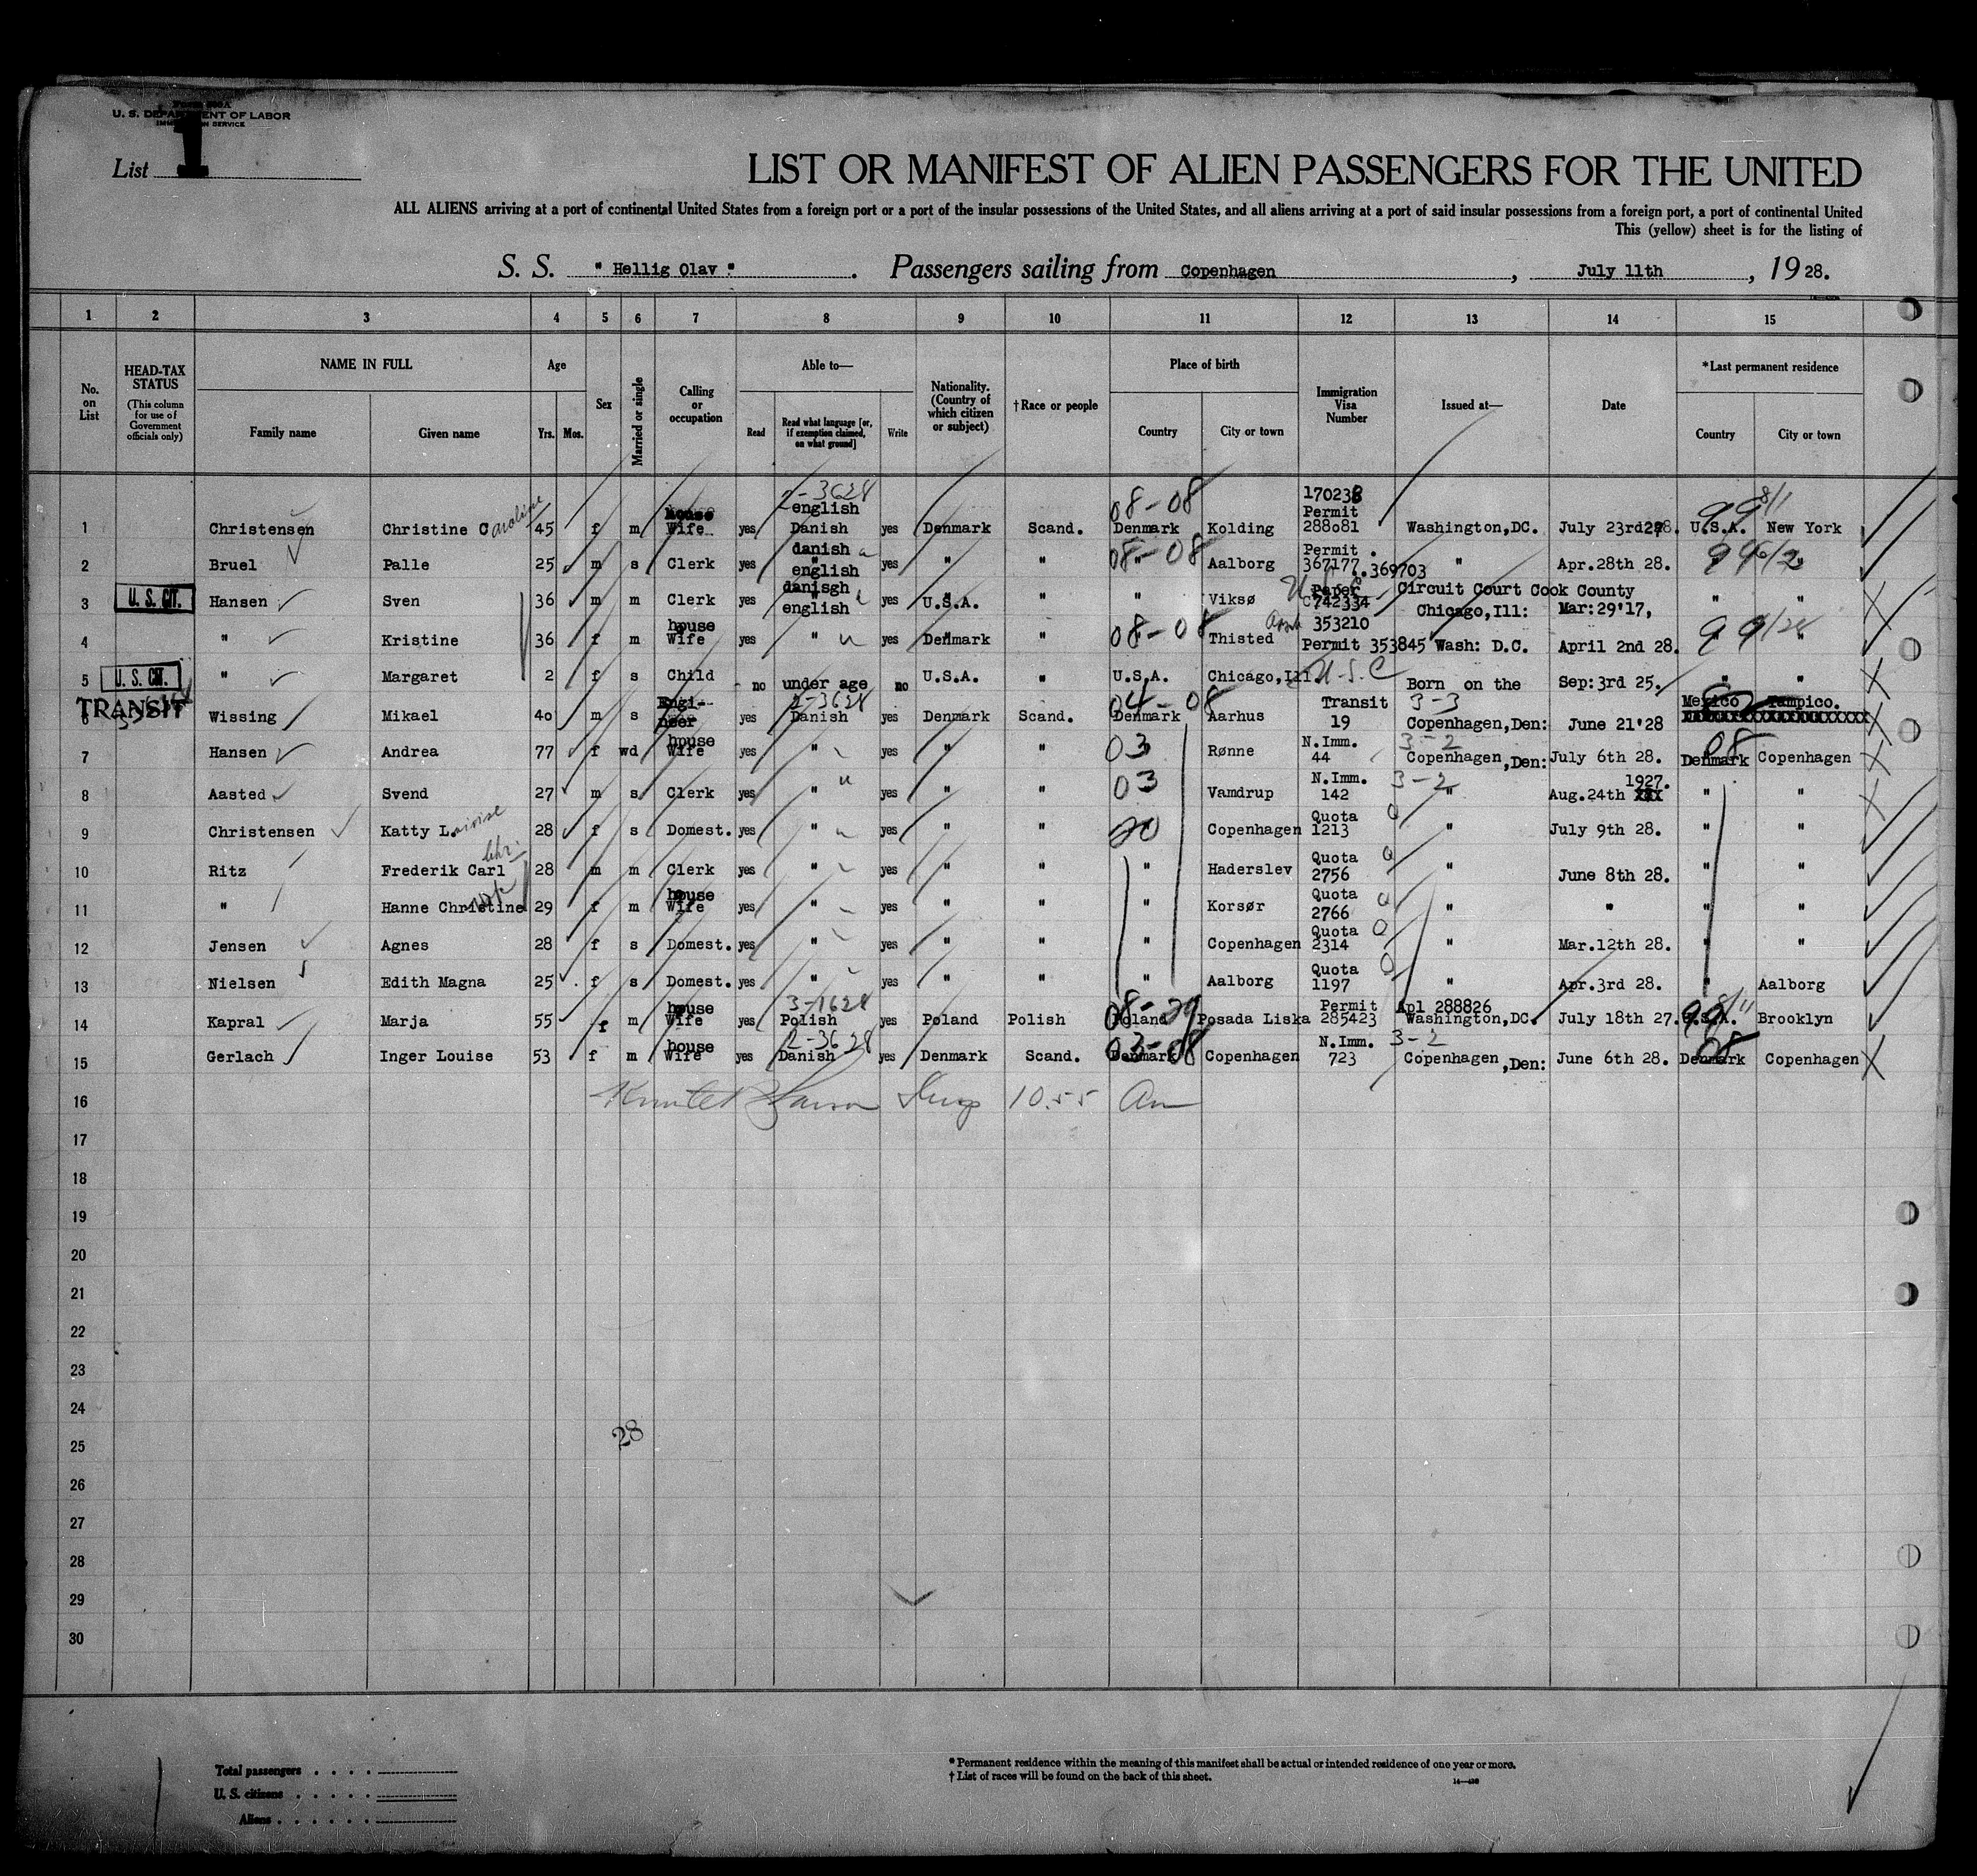 Form 500A
U. S. DEPARTMENT OF LABOR
IMMIGRATION SERVICE
List 1
LIST OR MANIFEST OF ALIEN PASSENGERS FOR THE UNITED
ALL ALIENS arriving at a port of continental United States from a foreign port or a port of the insular possessions of the United States, and all aliens arriving at a port of said insular possessions from a foreign port, a port of continental United
This (yellow) sheet is for the listing of
S. S. " Hellig Olav " . Passengers sailing from Copenhagen , July 11th , 19 28.
1 2 3 4 5 6 7 8 9 10 11 12 13 14 15
No. on List
HEAD-TAX STATUS (This column for use of Government officials only)
NAME IN FULL Family name Given name
Age Yrs. Mos.
Sex
Married or single
Calling or occupation
Able to— Read Read what language [or, if exemption claimed, on what ground] Write
Nationality. (Country of which citizen or subject)
†Race or people
Place of birth Country City or town
Immigration Visa Number
Issued at—
Date
*Last permanent residence Country City or town
2-3628 08-08 170238 99 8/1
house english Permit
1 Christensen Christine Caroline 45 f m Wife yes Danish yes Denmark Scand. Denmark Kolding 288081 Washington,DC. July 23rd 28. U.S.A. New York
danish Permit .
2 Bruel Palle 25 m s Clerk yes " english yes " " 08-08 " Aalborg 367177.369703 " Apr.28th 28. 99
danisgh Paper Circuit Court Cook County
3 U. S. CIT. Hansen Sven 36 m m Clerk yes english yes U.S.A. " " Viksø C742334 Chicago,Ill: Mar:29'17, " "
house 08-08 353210
4 " Kristine 36 f m Wife yes " yes Denmark " Thisted Permit 353845 Wash: D.C. April 2nd 28. 99/28
5 U. S. CIT. " Margaret 2 f s Child no under age no U.S.A. " U.S.A. Chicago,Ill. U.S.C Born on the Sep:3rd 25. " "
TRANSIT Engi- 2-3628 04-08 Transit 3-3 Mexico Tampico.
6 Wissing Mikael 40 m s neer yes Danish yes Denmark Scand. Denmark Aarhus 19 Copenhagen,Den: June 21'28 xxxxxxxxxxxxxxxxxx
house N.Imm. 3-2 08
7 Hansen Andrea 77 f wd Wife yes " yes " " 03 Rønne 44 Copenhagen,Den: July 6th 28. Denmark Copenhagen
N.Imm. 3-2 1927.
8 Aasted Svend 27 m s Clerk yes " yes " " 03 Vamdrup 142 " Aug.24th xxx " "
Quota
9 Christensen Katty Louise 28 f s Domest. yes " yes " " 20 Copenhagen 1213 " July 9th 28. " "
Chr. Quota
10 Ritz Frederik Carl 28 m m Clerk yes " yes " " " Haderslev 2756 " June 8th 28. " "
house Quota
11 " Hanne Christine 29 f m Wife yes " yes " " " Korsør 2766 " " " "
Quota
12 Jensen Agnes 28 f s Domest. yes " yes " " " Copenhagen 2314 " Mar.12th 28. " "
Quota
13 Nielsen Edith Magna 25 . f s Domest. yes " yes " " " Aalborg 1197 " Apr.3rd 28. " Aalborg
house 3-1628 08-29 Permit Apl 288826 99 8/11
14 Kapral Marja 55 f m Wife yes Polish yes Poland Polish Poland Posada Liska 285423 Washington,DC. July 18th 27. U.S.A. Brooklyn
house 2-3628 03-08 N.Imm. 3-2 08
15 Gerlach Inger Louise 53 f m Wife yes Danish yes Denmark Scand. Denmark Copenhagen 723 Copenhagen,Den: June 6th 28. Denmark Copenhagen
16 10.55 Am
17
18
19
20
21
22
23
24
28
25
26
27
28
29
30
Total passengers . . . .
U. S. citizens . . . . .
Aliens . . . . . .
* Permanent residence within the meaning of this manifest shall be actual or intended residence of one year or more.
† List of races will be found on the back of this sheet.